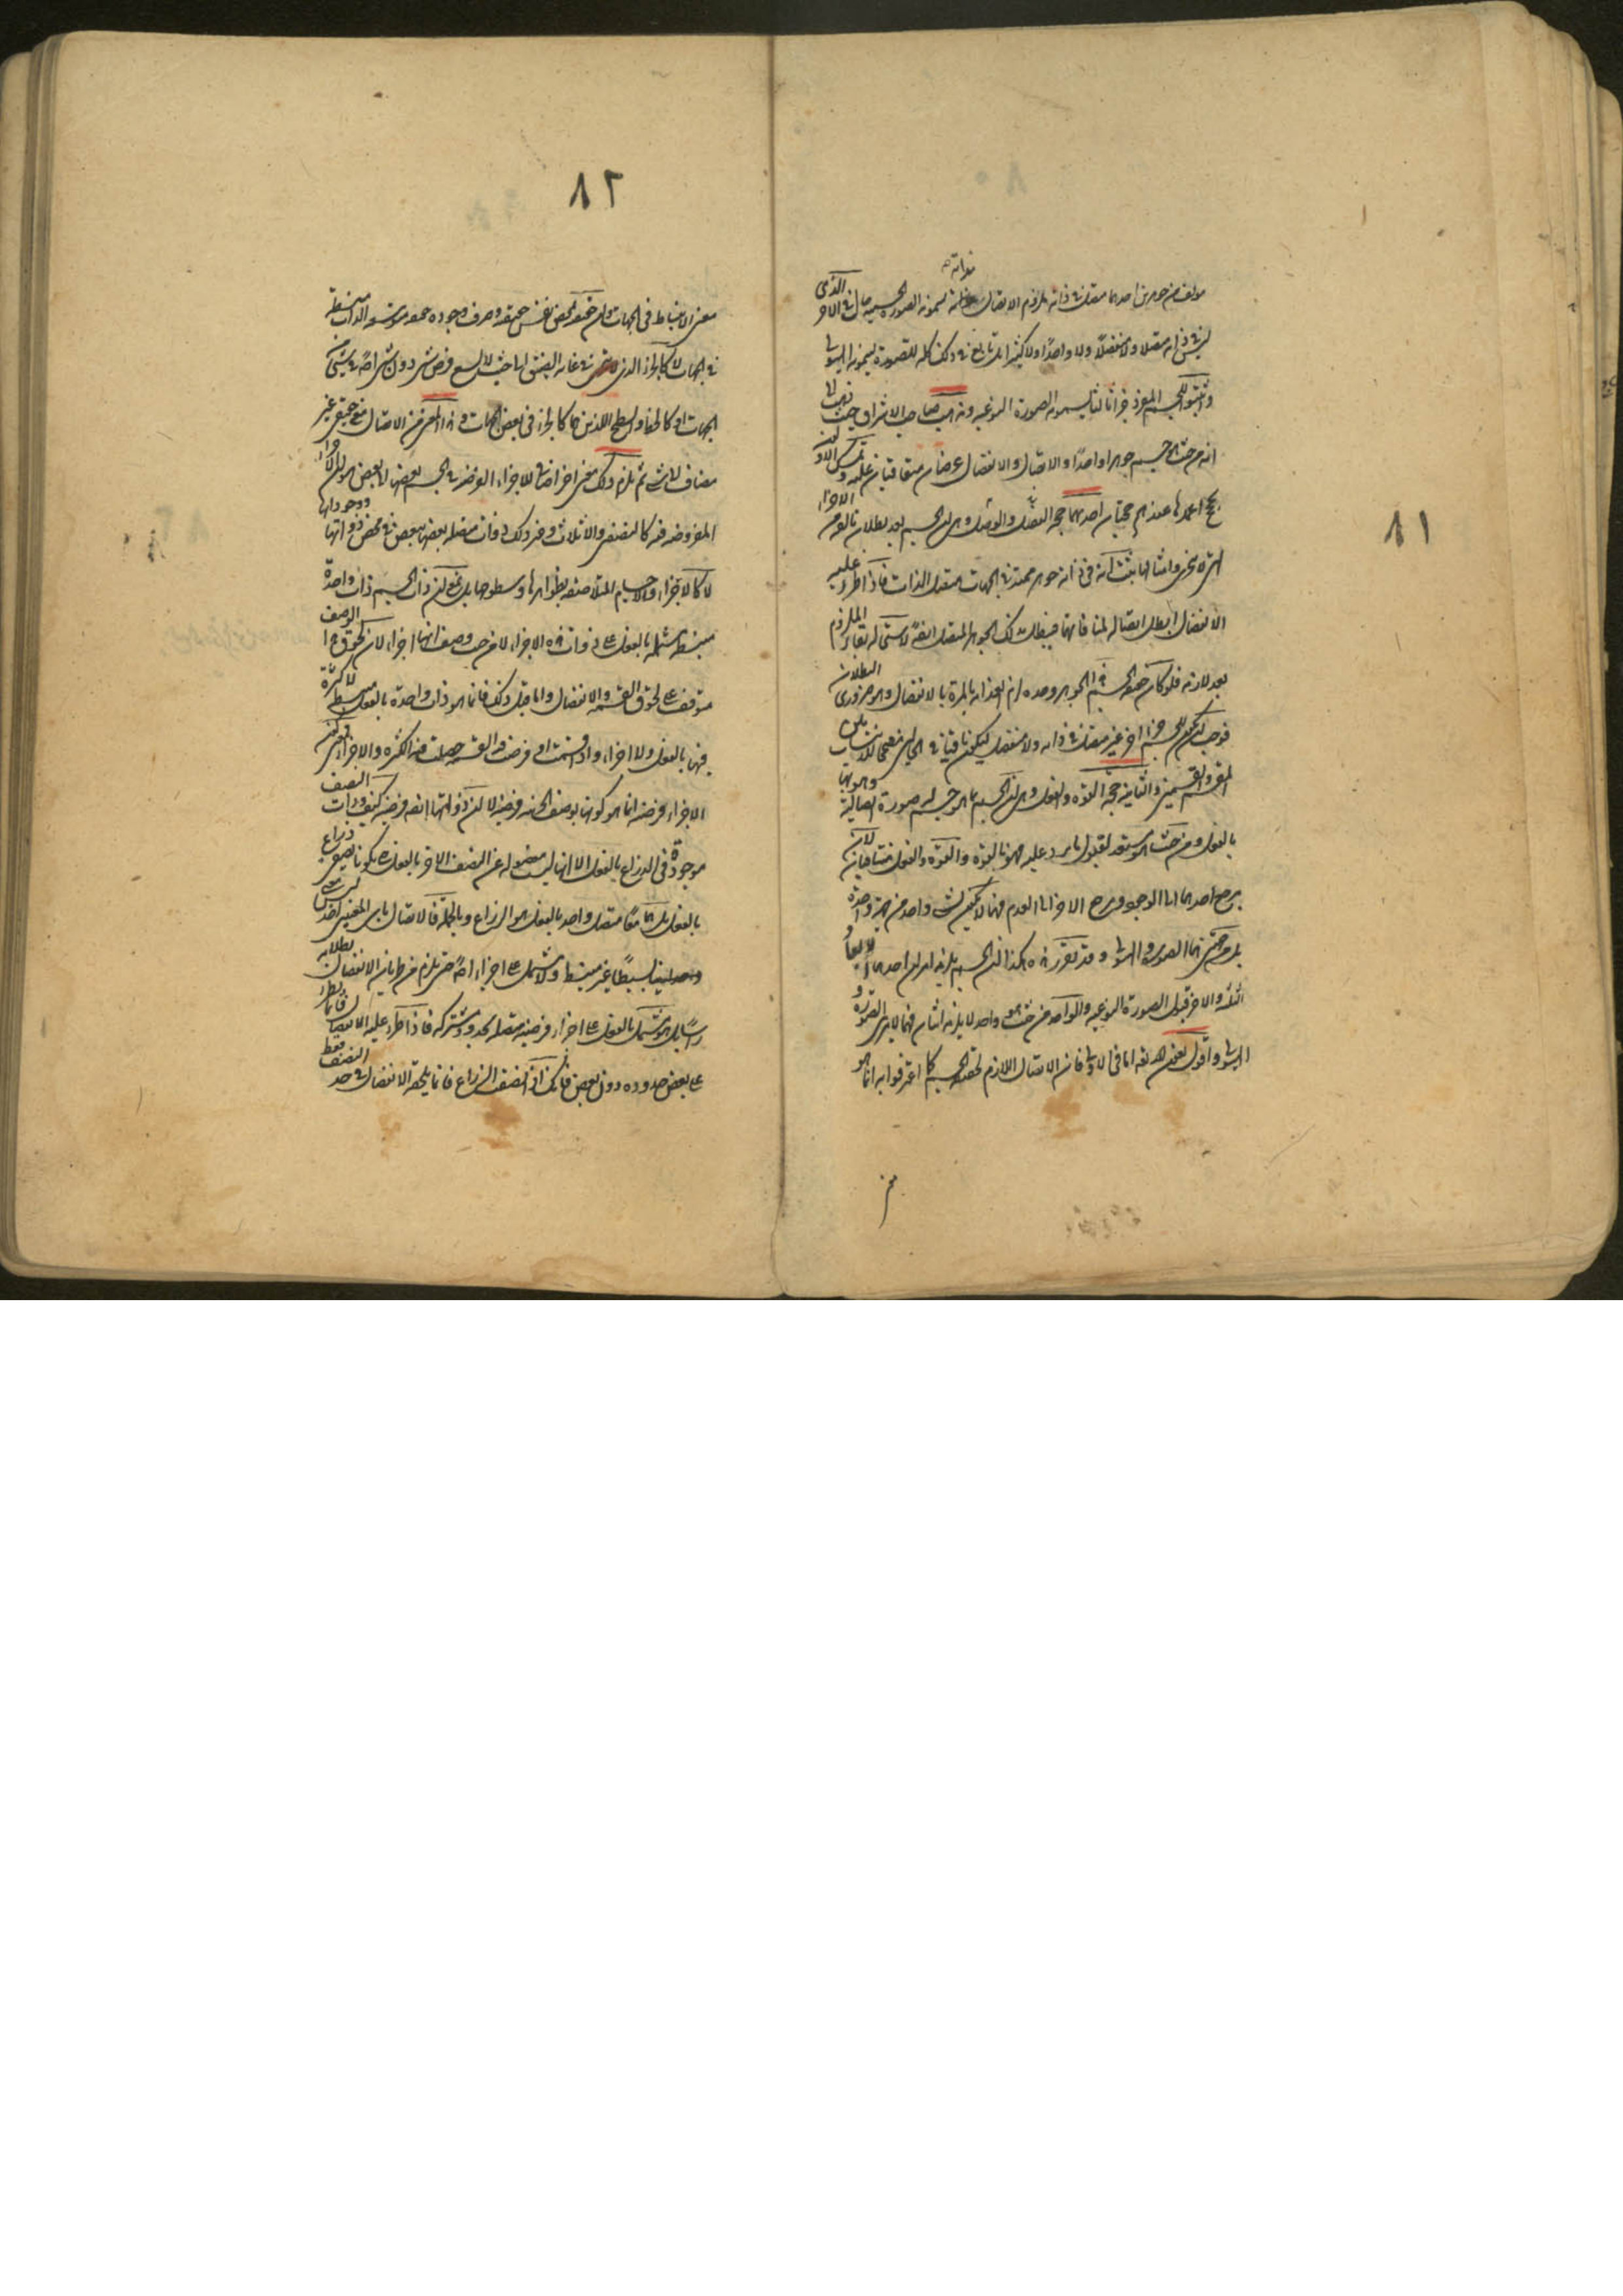 ٨١
مؤلف من جوهرين احدهما متصل في ذاته يلزم الاتصال بذاته يسمونه الصورة الجسمية حال في الاخر الذي
ليس في ذاته متصلا ولا منفصلا ولا واحدا ولا كثيرا بل تابع في ذلك كله للصورة يسمونه الهيولى
واثبتوا للجسم المفرد جزءا ثالثا يسمونه الصورة النوعية وذهب صاحب الاشراق حيث ذهب الى
انه من حيث هو جسم جوهرا واحدا والاتصال والانفصال عرضان متعاقبان عليه وتمسك الاولون
بحجج اعمدها عندهم حجتان احدهما حجة الفصل والوصل وهي ان الجسم بعد بطلان تألفه من الاجزاء
التي لا تتجزى وامثالها يثبت انه في ذاته جوهر ممتد في الجهات متصل الذات فاذا طرء عليه
الانفصال ابطل اتصاله لمنافاتها فيبطل ذلك الجوهر المتصل ايضا لاستحالة بقاء الملزوم
بعد لازمه فلو كان حقيقة الجسم هذا الجوهر وحده لزم انعدامه بالمرة بالانفصال وهو ضروري البطلان
فوجب ان يكون للجسم جزء اخر غير متصل في ذاته ولا منفصل ليكون باقيا في الحالين
المقسم والقسمين والثانية حجة القوة والفعل وهي ان الجسم بما هو جسم له صورة اتصالية وهو بها
بالفعل ومن حيث هو مستعد لقبول ما يرد عليه فهو بالقوة والقوة والفعل متنافيان لان
مرجع احدهما الى الوجود ومرجع الاخر الى العدم فهما لا يكونان لشيء واحد من جهة واحدة
بل من جهتين هما الصورة والهيولى وقد تقرر هذه هكذا ان الجسم يلزمه امران احدهما الابعاد
الثلثة والاخر قبول الصورة النوعية والواحد من حيث هو واحد لا يلزمه اثنان فهما لامرين الصورة و
الهيولى واقول بعض هذه اما في الاولى فان الاتصال اللازم لحقيقة الجسم كما اعترفوا به انما هو
٨٢
معنى الانبساط في الجهات وان حقيقته محض نفس حقيقته وصرف وجوده منبسط
في الجهات لا كالجزء الذي لا يتجزى في غاية الضيق لا يسع فرض شيء دون شيء اصلا في شيء من
الجهات او كالخط والسطح اللذين هما كالجزء في بعض الجهات وهذا المعنى من الاتصال معنى حقيقي غير
مضاف الى شيء ثم يلزم ذلك معنى اخر اضافي للاجزاء الفرضية في الجسم بعضها الى بعض هو ان الاجزاء
المفروضة فيه كالنصفين والاثلاث وغير ذلك ذوات متصلة بعضها ببعض في محض ذواتها ووجوداتها
لا كالاجزاء والاجسام المتلاصقة بظواهرها وسطوحها بل بمعنى ان ذات الجسم ذات واحدة
منبسطة مشتملة بالفعل على ذوات هذه الاجزاء لا من حيث وصف انها اجزاء لان لحوق هذا الوصف
متوقف على لحوق القسمة والانفصال واما قبل ذلك فانما هو ذات واحدة بالفعل منبسطة لا كثرة
فيها بالفعل ولا اجزاء واذا قسمت او فرضت فيه القسمة حصلت فيه الكثرة والاجزاء
الاجزاء فرضية انما هو كونها بوصف الجزئية فرضية لا ان ذواتها ايضا فرضية كيف وذات النصف
موجودة في الذراع بالفعل الا انها ليست مفصولة عن النصف الاخر بالفعل حتى يكونا نصفي ذراع
بالفعل بل هما معا متصل واحد بالفعل هو الذراع وبالجملة فالاتصال بأي المعنيين اخذ ليس معنى
وحدانيا بسيطا غير منبسط ولا مشتمل على اجزاء اصلا حتى يلزم من طريان الانفصال بطلانه
رأسا بل هو مشتمل بالفعل على اجزاء فرضية متصلة بحدود مشتركة فاذا طرء عليه الانفصال فانما يطرء
على بعض حدوده دون بعض فانك اذا نصفت الذراع فانما يلحقه الانفصال في حد النصف فقط